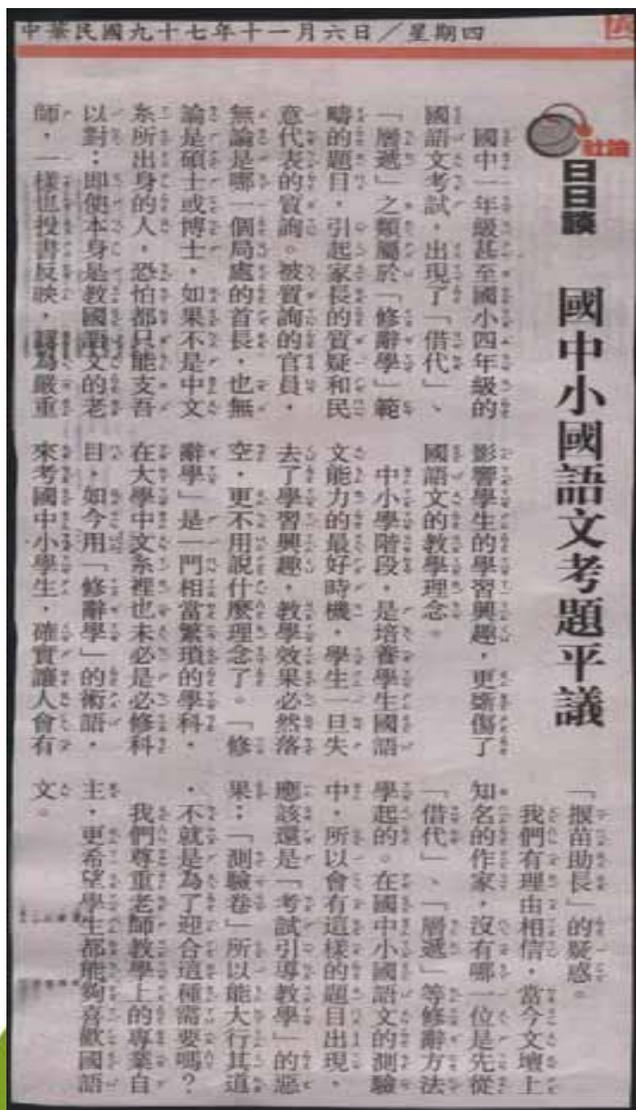 中華民國九十七年十一月六日／星期四
社論
日日談
國中小國語文考題平議
國中一年級甚至國小四年級的
國語文考試，出現了「借代」、
「層遞」之類屬於「修辭學」範
疇的題目，引起家長的質疑和民
意代表的質詢。被質詢的官員，
無論是哪一個局處的首長，也無
論是碩士或博士，如果不是中文
系所出身的人，恐怕都只能支吾
以對；即使本身是教國語文的老
師，一樣也投書反映，認為嚴重
影響學生的學習興趣，更斲傷了
國語文的教學理念。
中小學階段，是培養學生國語
文能力的最好時機，學生一旦失
去了學習興趣，教學效果必然落
空，更不用說什麼理念了。「修
辭學」是一門相當繁瑣的學科，
在大學中文系裡也未必是必修科
目，如今用「修辭學」的術語，
來考國中小學生，確實讓人會有
「揠苗助長」的疑惑。
我們有理由相信，當今文壇上
知名的作家，沒有哪一位是先從
「借代」、「層遞」等修辭方法
學起的。在國中小國語文的測驗
中，所以會有這樣的題目出現，
應該還是「考試引導教學」的惡
果；「測驗卷」所以能大行其道
，不就是為了迎合這種需要嗎？
我們尊重老師教學上的專業自
主，更希望學生都能夠喜歡國語
文。